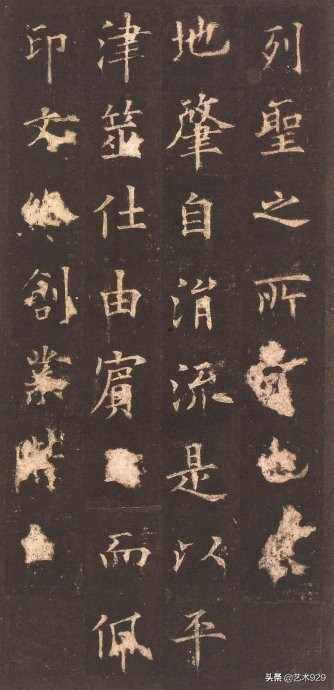 列聖之所也
地肇自涓流是以平
津筮仕由賓而佩
印文終創業
头条 @艺术929